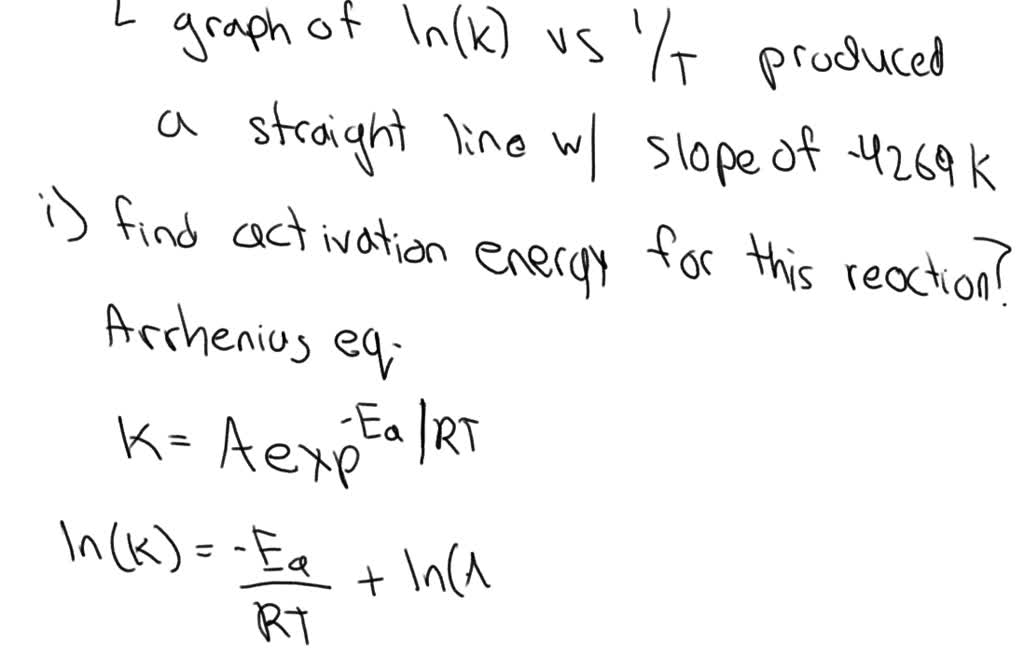 graph of ln(k) vs 1/T produced
a straight line w/ slope of -4269 K
i) find activation energy for this reaction?
Arrhenius eq.
K = A exp^-Ea/RT
ln(K) = -Ea/RT + ln(